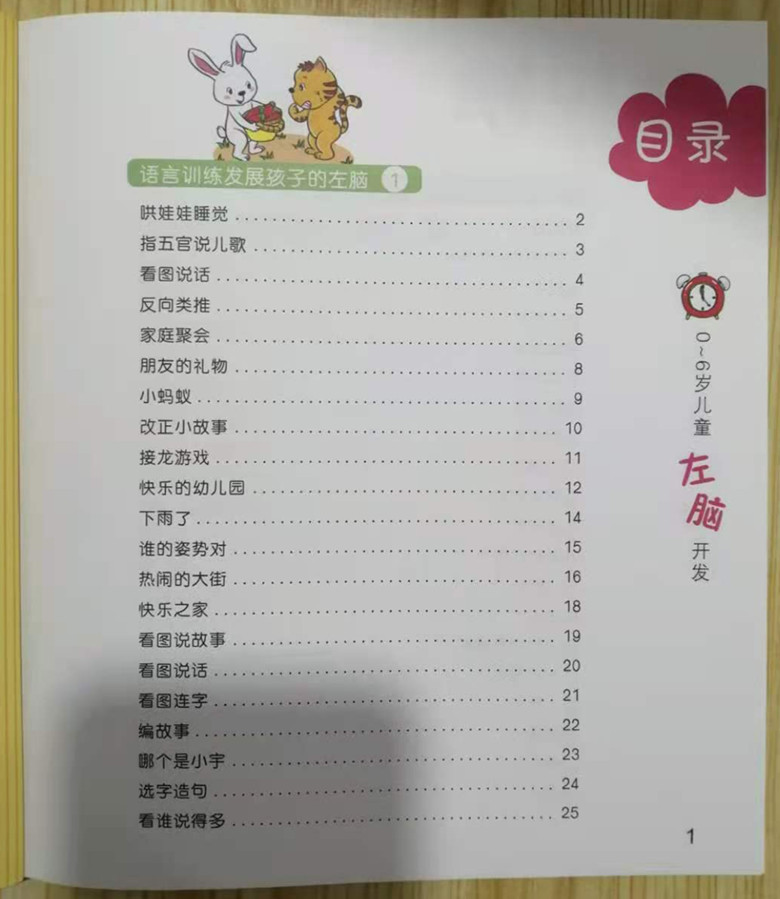 目录
语言训练发展孩子的左脑 1
哄娃娃睡觉 2
指五官说儿歌 3
看图说话 4
反向类推 5
家庭聚会 6
朋友的礼物 8
小蚂蚁 9
改正小故事 10
接龙游戏 11
快乐的幼儿园 12
下雨了 14
谁的姿势对 15
热闹的大街 16
快乐之家 18
看图说故事 19
看图说话 20
看图连字 21
编故事 22
哪个是小宇 23
选字造句 24
看谁说得多 25
0~6岁儿童左脑开发
1